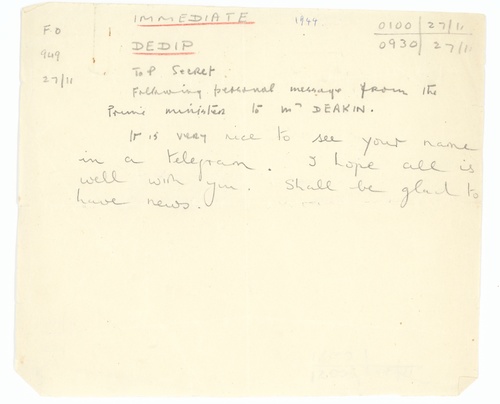 IMMEDIATE
1944.
0100 27/11
F.O
DEDIP
0930 27/11
949
27/11
Top Secret.
Following personal message from the
Prime Minister to Mr DEAKIN.
It is very nice to see your name
in a telegram. I hope all is
well with you. Shall be glad to
have news.